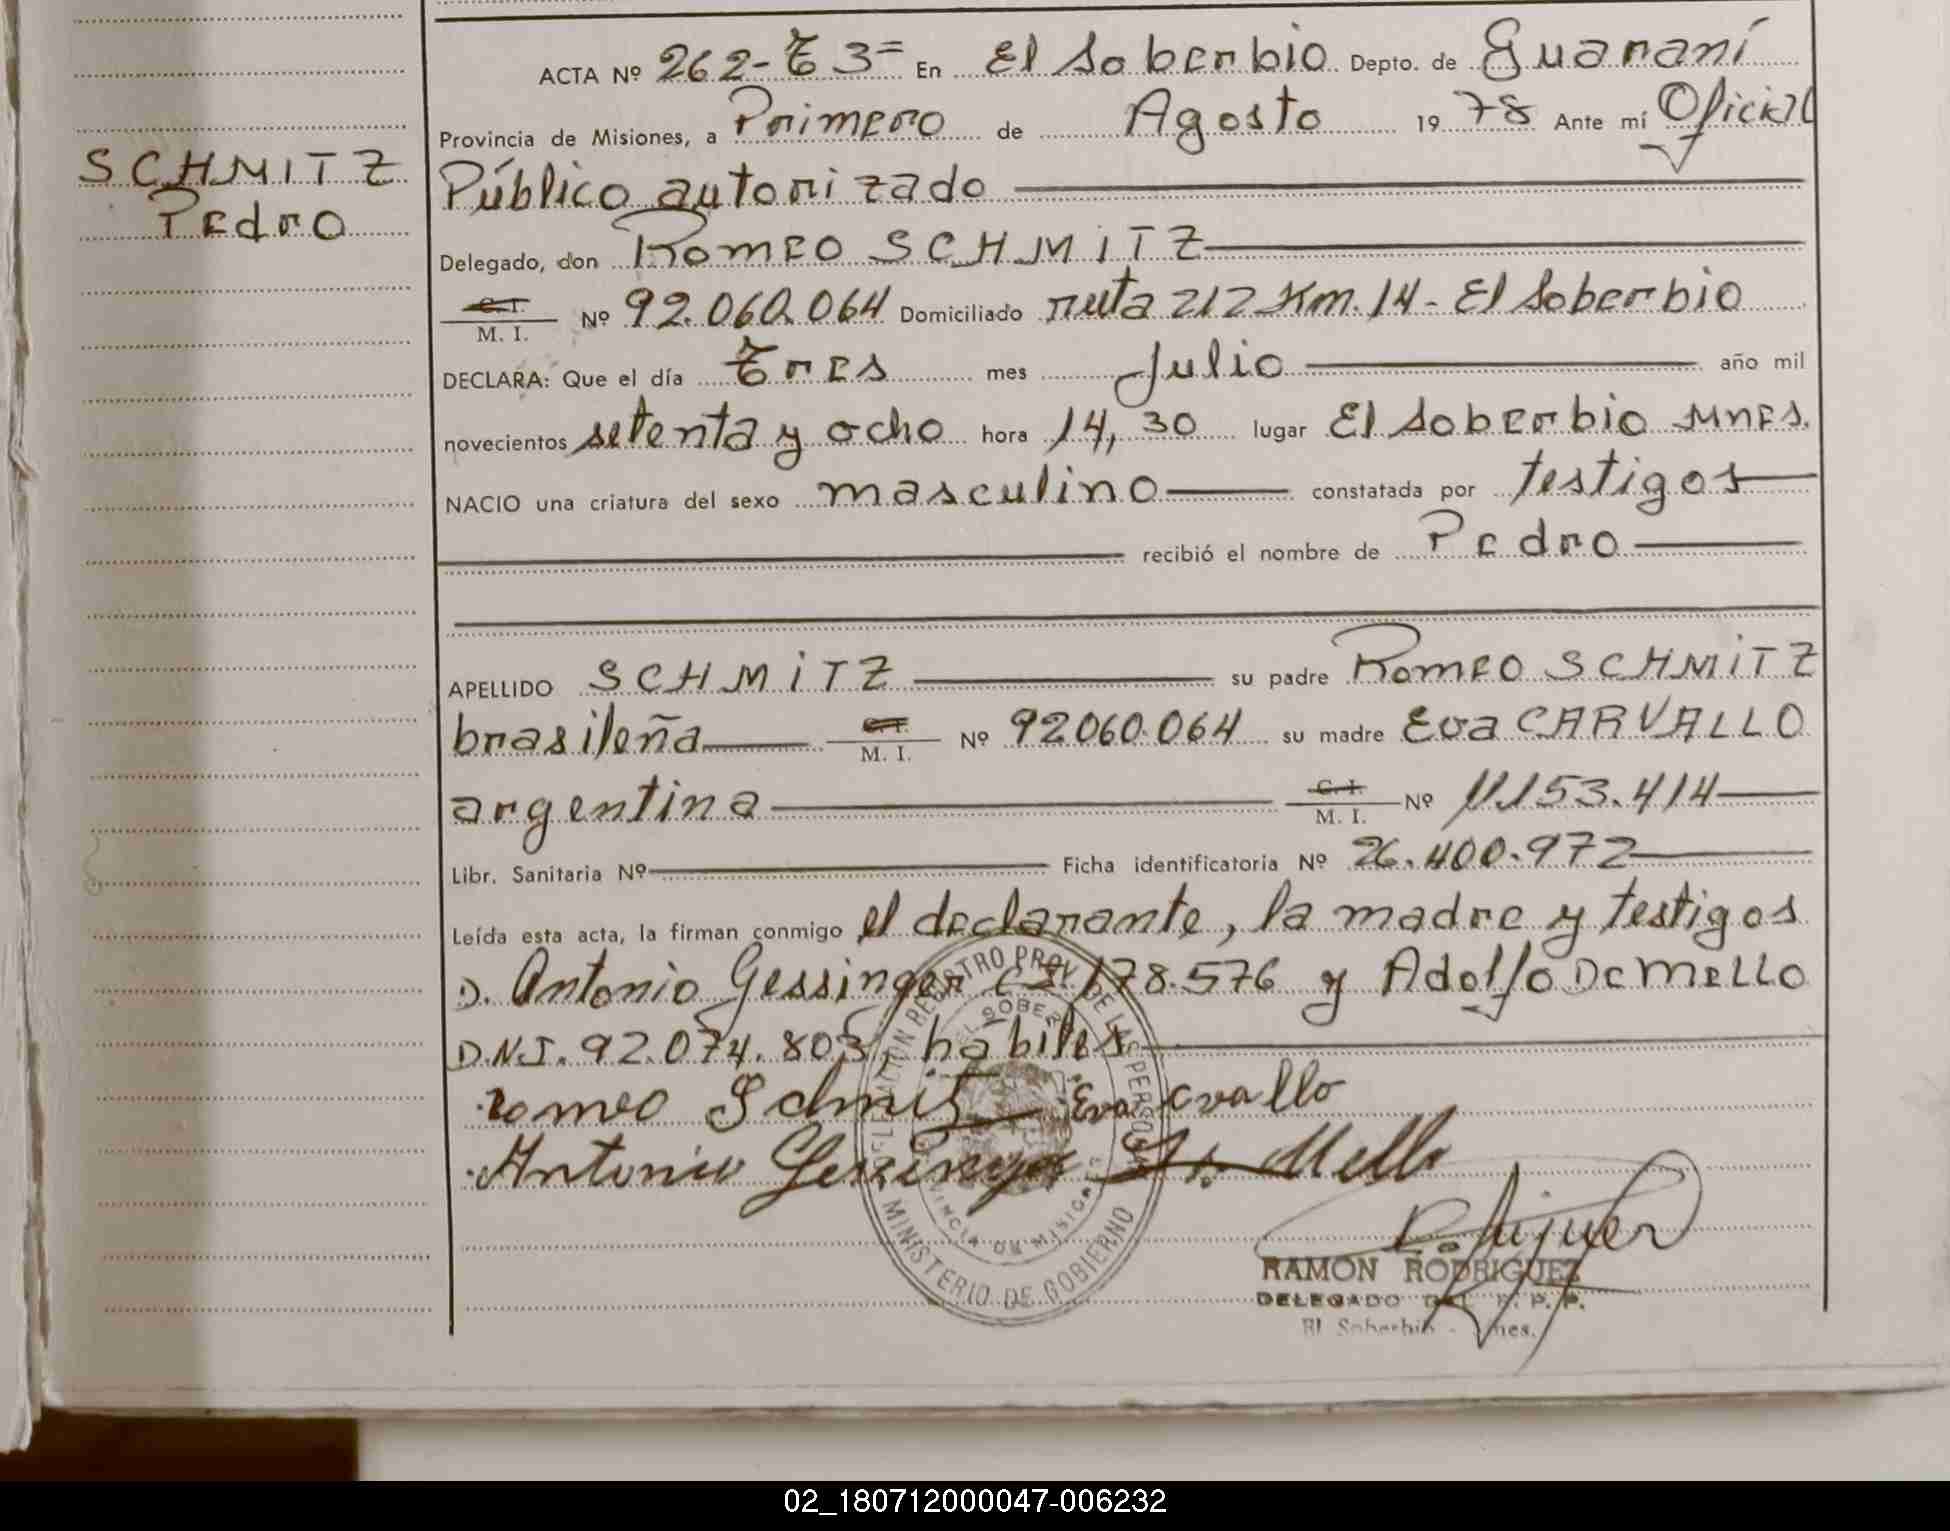 ACTA Nº 262-T 3= En El Soberbio Depto. de Guaraní
Provincia de Misiones, a Primero de Agosto 1978 Ante mí Oficial
SCHMITZ
Pedro
Público autorizado
Delegado, don Romeo SCHMITZ
C. I.
M. I. Nº 92.060.064 Domiciliado ruta 212 Km. 14 - El Soberbio
DECLARA: Que el día Tres mes Julio año mil
novecientos setenta y ocho hora 14,30 lugar El Soberbio Mnes.
NACIO una criatura del sexo masculino constatada por testigos
recibió el nombre de Pedro
APELLIDO SCHMITZ su padre Romeo SCHMITZ
brasileña C. I. M. I. Nº 92060.064 su madre Eva CARVALLO
argentina C. I. M. I. Nº 11.153.414
Libr. Sanitaria Nº Ficha identificatoria Nº 26.400.972
Leída esta acta, la firman conmigo el declarante, la madre y testigos
D. Antonio Gessinger 178.576 y Adolfo De MELLO
D.N.I. 92.074.803, hábiles
romeo Schmitz Eva Cvallo
Antonio Gessinger Mello
REGISTRO PROV. DE LAS PERSONAS
EL SOBERBIO
PROVINCIA DE MISIONES
MINISTERIO DE GOBIERNO
RAMON RODRIGUEZ
DELEGADO DEL R. P. P.
El Soberbio - Mnes.
02_180712000047-006232